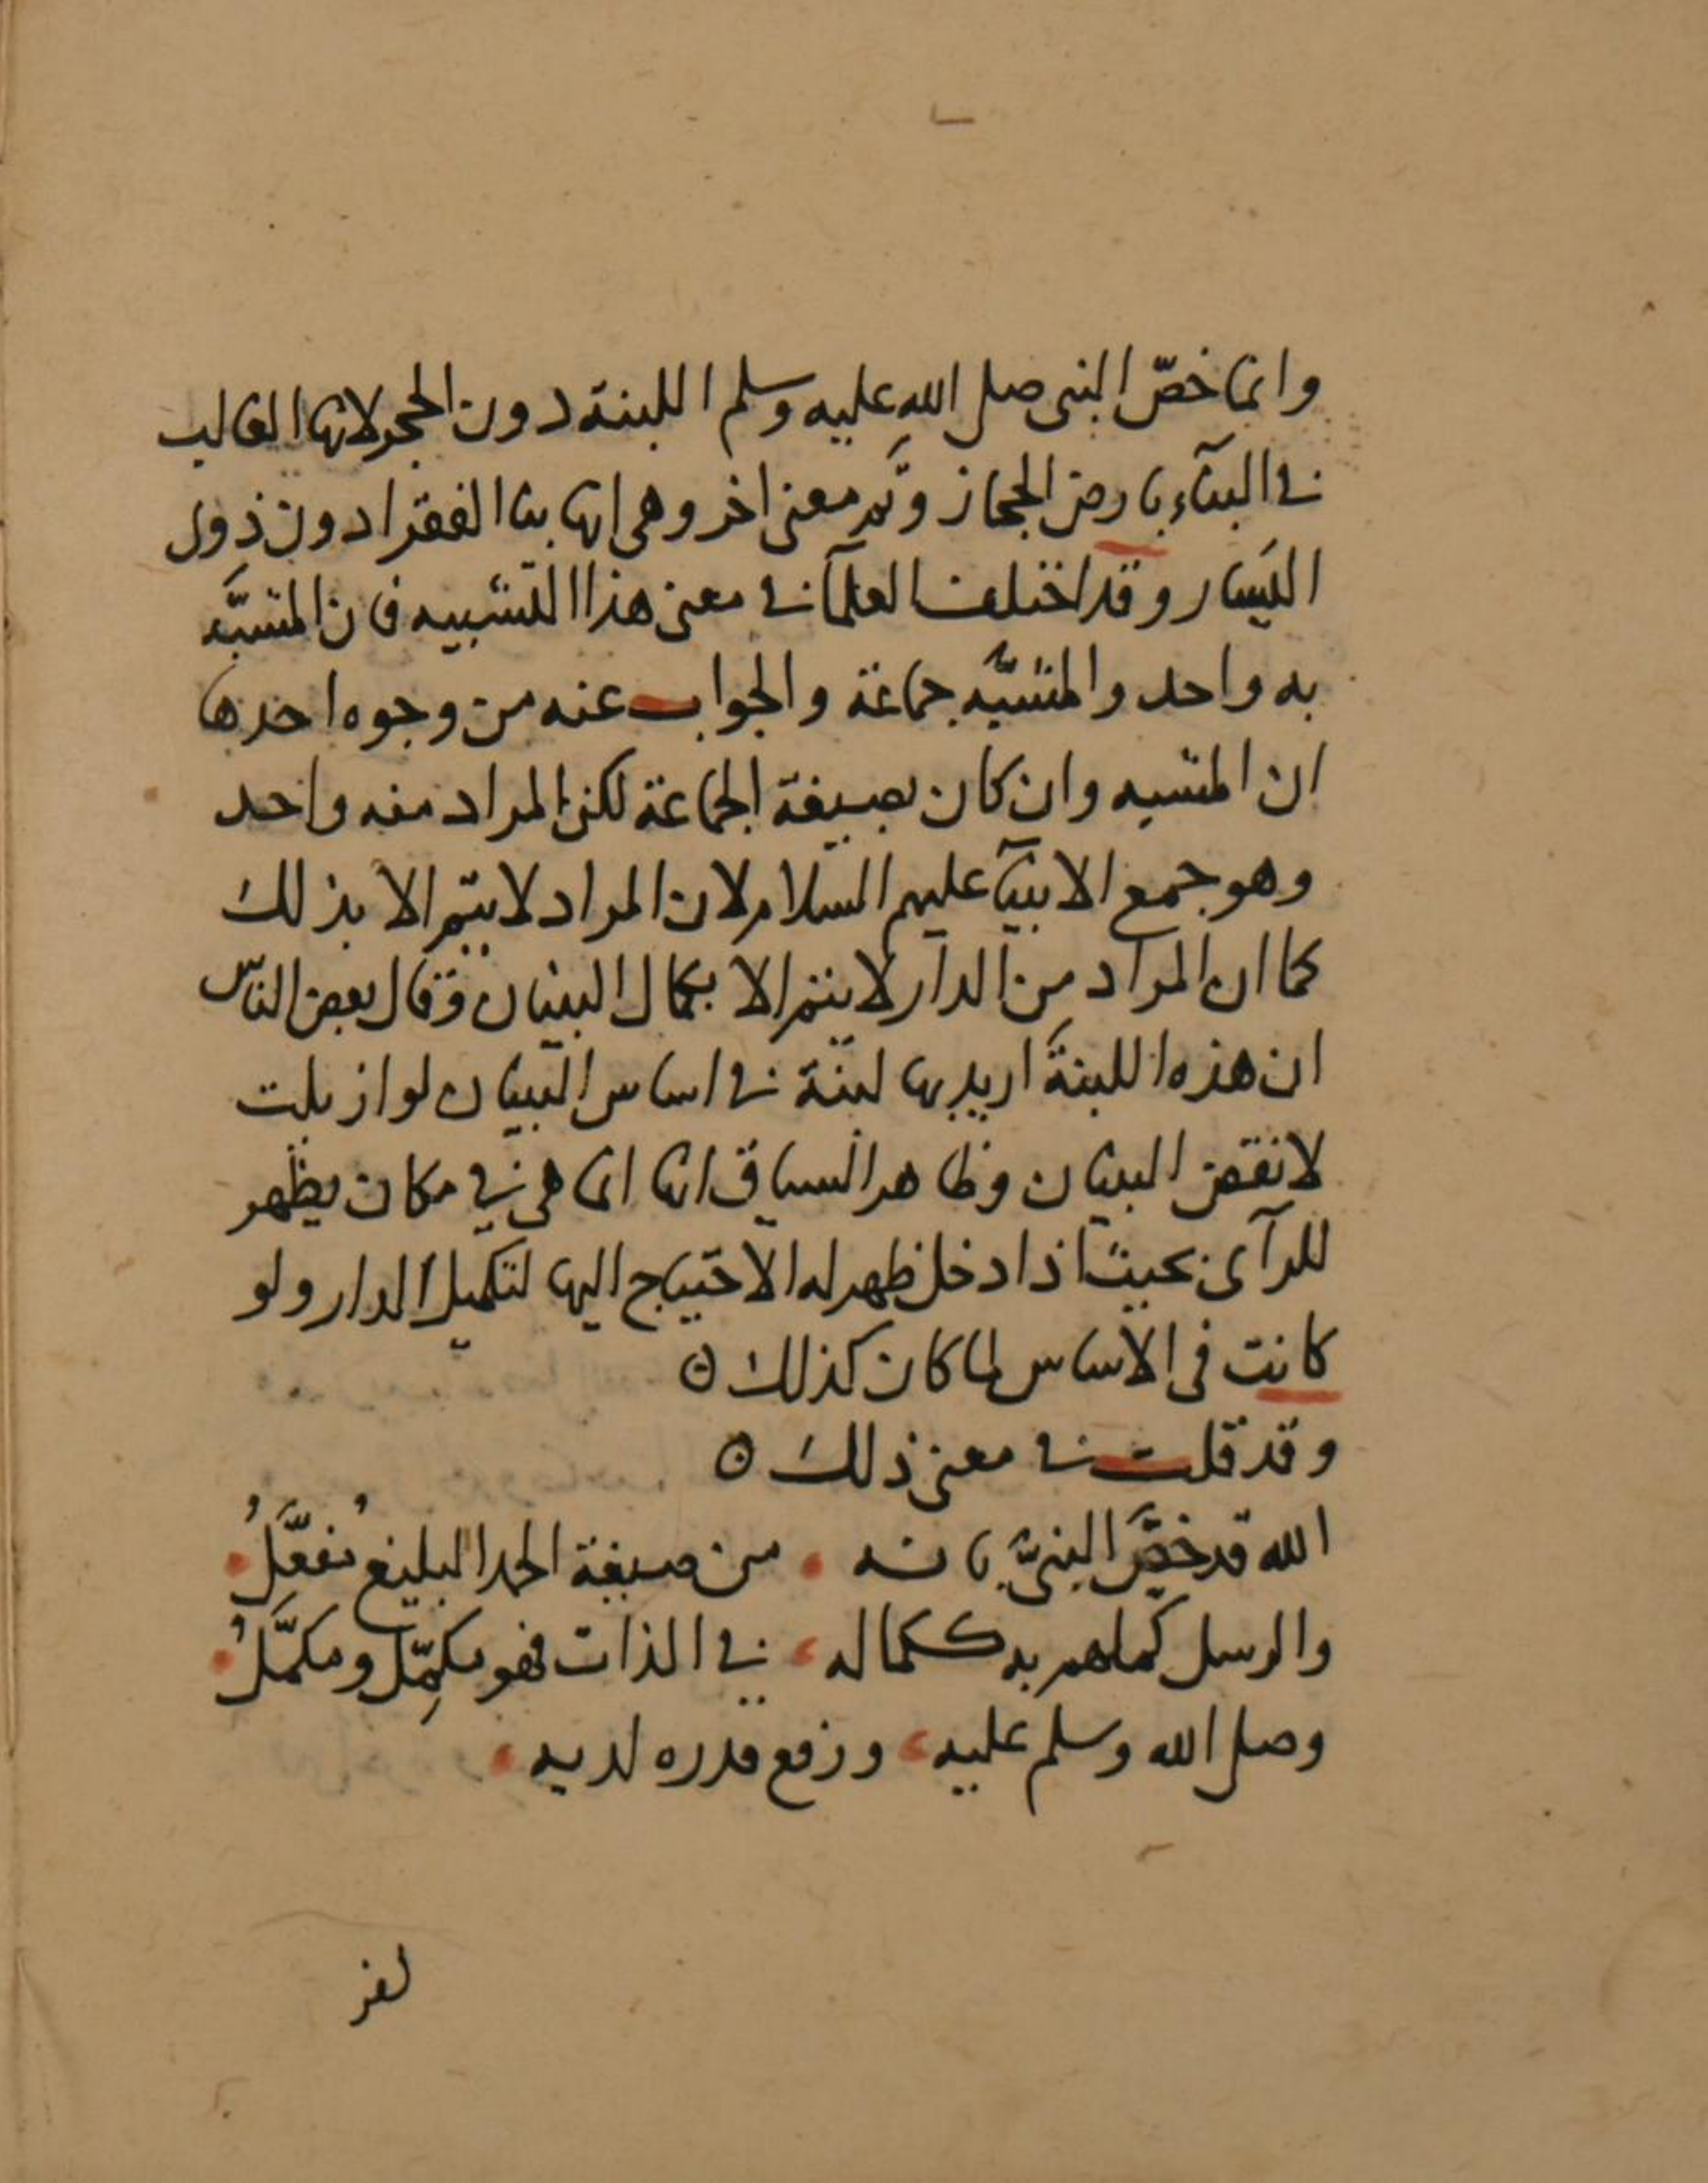 وانما خصّ النبي صلى الله عليه وسلم اللبنة دون الحجر لانها الغالب
في البنآء بارض الحجاز وثَم معنى اخر وهى انها بنا الفقرا دون ذوى
اليَسار وقد اختلف العلمآ في معنى هذا التشبيه فان المشبَّه
به واحد والمشبَّه جماعة والجواب عنه من وجوه احدها
ان المشبه وان كان بصيغة الجماعة لكن المراد منه واحد
وهو جمع الانبيآ عليهم السلام لان المراد لا يتم الا بذلك
كما ان المراد من الدار لا يتم الا بكمال البنيان وقال بعض الناس
ان هذه اللبنة اريد بها لبنة في اساس البنيان لو ازيلت
لانقض البنيان وظاهر السياق انها انما هى في مكان يظهر
للرآى بحيث اذا دخل ظهر له الاحتياج اليها لتكميل الدار ولو
كانت فى الاساس لما كان كذلك ه
وقد قلت في معنى ذلك ه
الله قد خصَّ النبيَّ بانه . من صيغة الحمد البليغ مُفعَّلُ
والرسل كملهم به ككماله ، في الذات فهو مكمِّل ومكمَّلُ
وصلى الله وسلم عليه ، ورفع قدره لديه ،
لغز